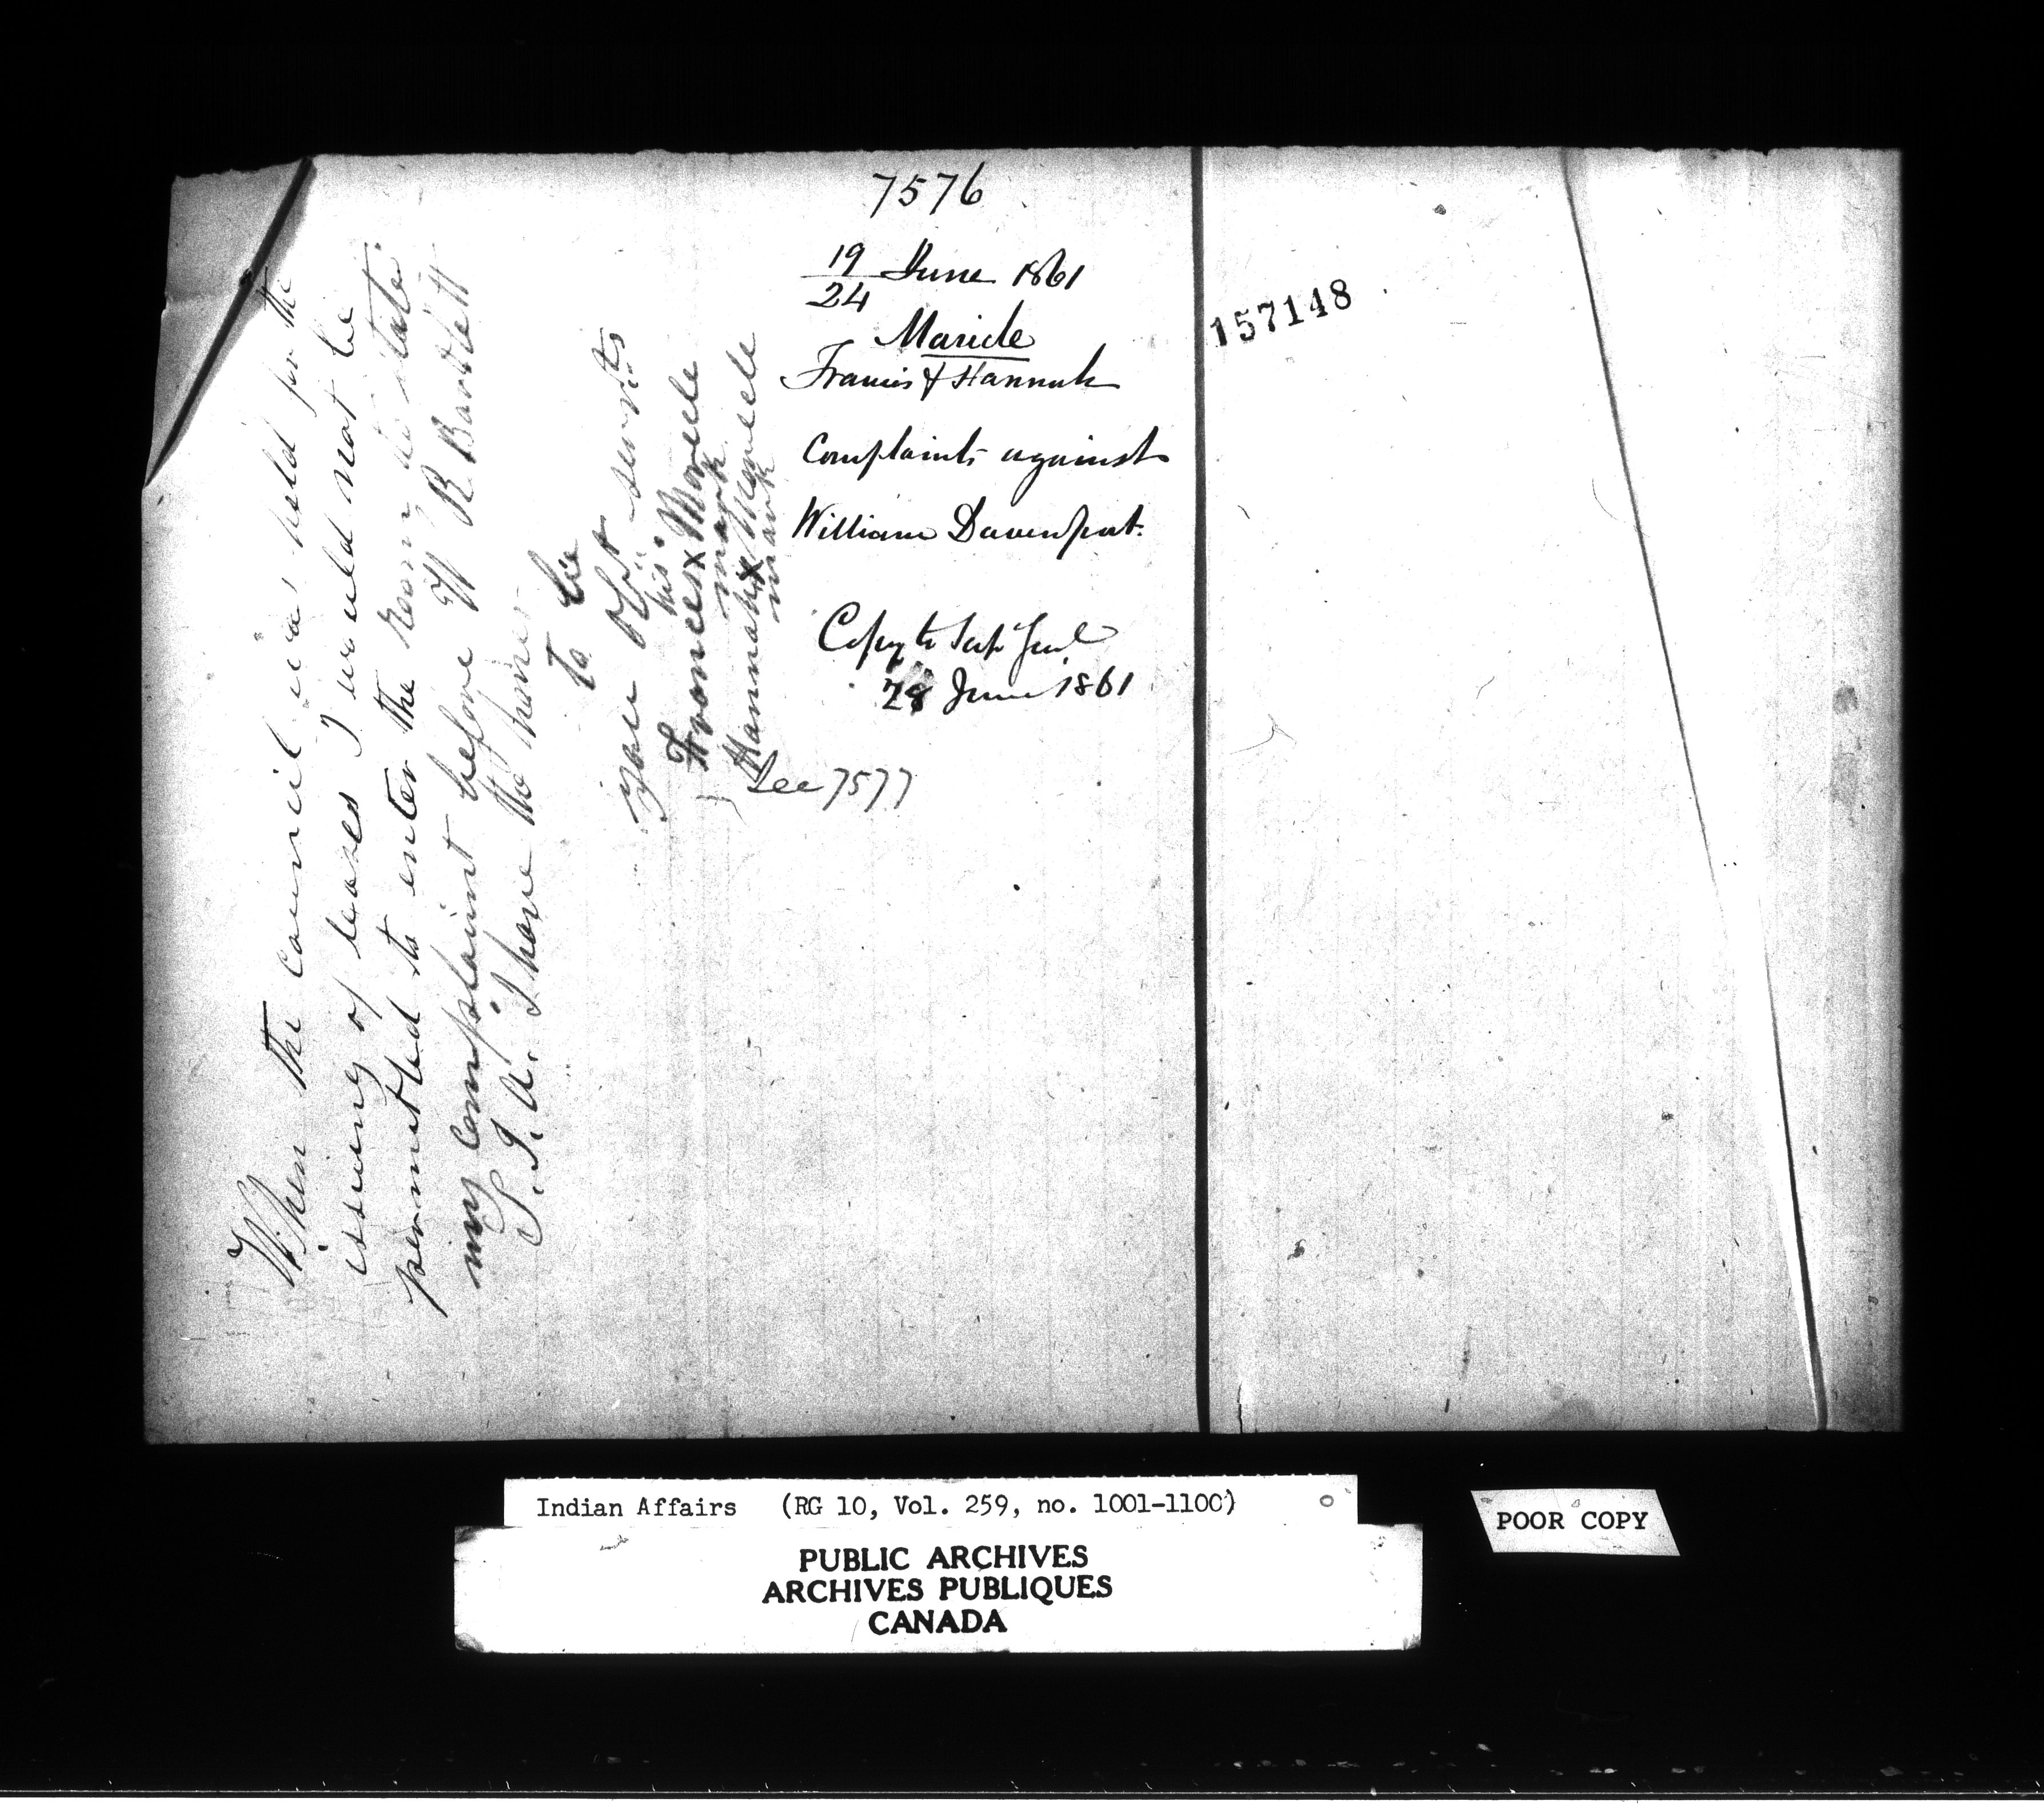 When the council was held for the
issuing of leases I would not be
permitted to enter the room to state
my complaint before W R Bartlett
S. I. A. I have the honor
to be
your Obt servents
his
Frances x Moricle
mark
Hannah x Moricle
mark
7576
19
24 June 1861
Maricle
Francis & Hannah
Complaints against
William Davenport.
Copy to Supt Genl
28 June 1861
See 7577
157148
Indian Affairs (RG 10, Vol. 259, no. 1001-1100)
PUBLIC ARCHIVES
ARCHIVES PUBLIQUES
CANADA
POOR COPY